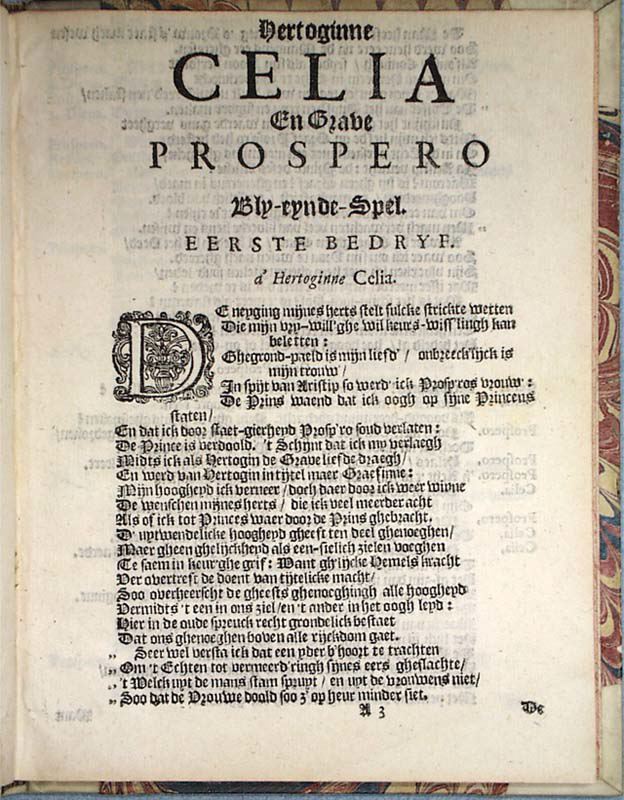 Hertoginne
CELIA
En Grave
PROSPERO
Bly-eynde-Spel.
EERSTE BEDRYF.
d' Hertoginne Celia.
DE neyging mijnes herts stelt sulcke strickte wetten
Die mijn vry-will'ghe wil keurs-wiss'lingh kan
beletten:
Ghegrond-paeld is mijn liefd'/ onbreeck'lijck is
mijn trouw/
In spijt van Aristip so werd' ick Prosp'ros vrouw:
De Prins waend dat ick oogh op sijne Princens
staten/
En dat ick door staet-gierheyd Prosp'ro soud verlaten:
De Prince is verdoold. 't Schijnt dat ick my verlaegh
Midts ick als Hertogin de Grave liefde draegh/
En werd van Hertogin in tijtel maer Graefinne:
Mijn hoogheyd ick verneer/ doch daer door ick weer winne
De wenschen mijnes herts/ die ick veel meerder acht
Als of ick tot Princes waer door de Prins ghebracht.
D' uytwendelicke hoogheyd gheeft ten deel ghenoeghen/
Maer gheen ghelijckheyd als een-sielich zielen voeghen
Te saem in keur'ghe grif: Want gh'lijcke Hemels kracht
Ver overtreft de doent van tijtelicke macht/
Soo overheerscht de gheests ghenoeghingh alle hoogheyd
Vermidts 't een in ons ziel/ en 't ander in het oogh leyd:
Hier in de oude spreuck recht grondelick bestaet
Dat ons ghenoeghen boven alle rijckdom gaet.
„ Seer wel versta ick dat een yder b'hoort te trachten
„ Om 't Echten tot vermeerd'ringh sijnes eers gheslachte/
„ 't Welck uyt de mans stam spruyt/ en uyt de vrouwens niet/
„ Soo dat de Vrouwe doald soo z' op heur minder siet.
A 3
De